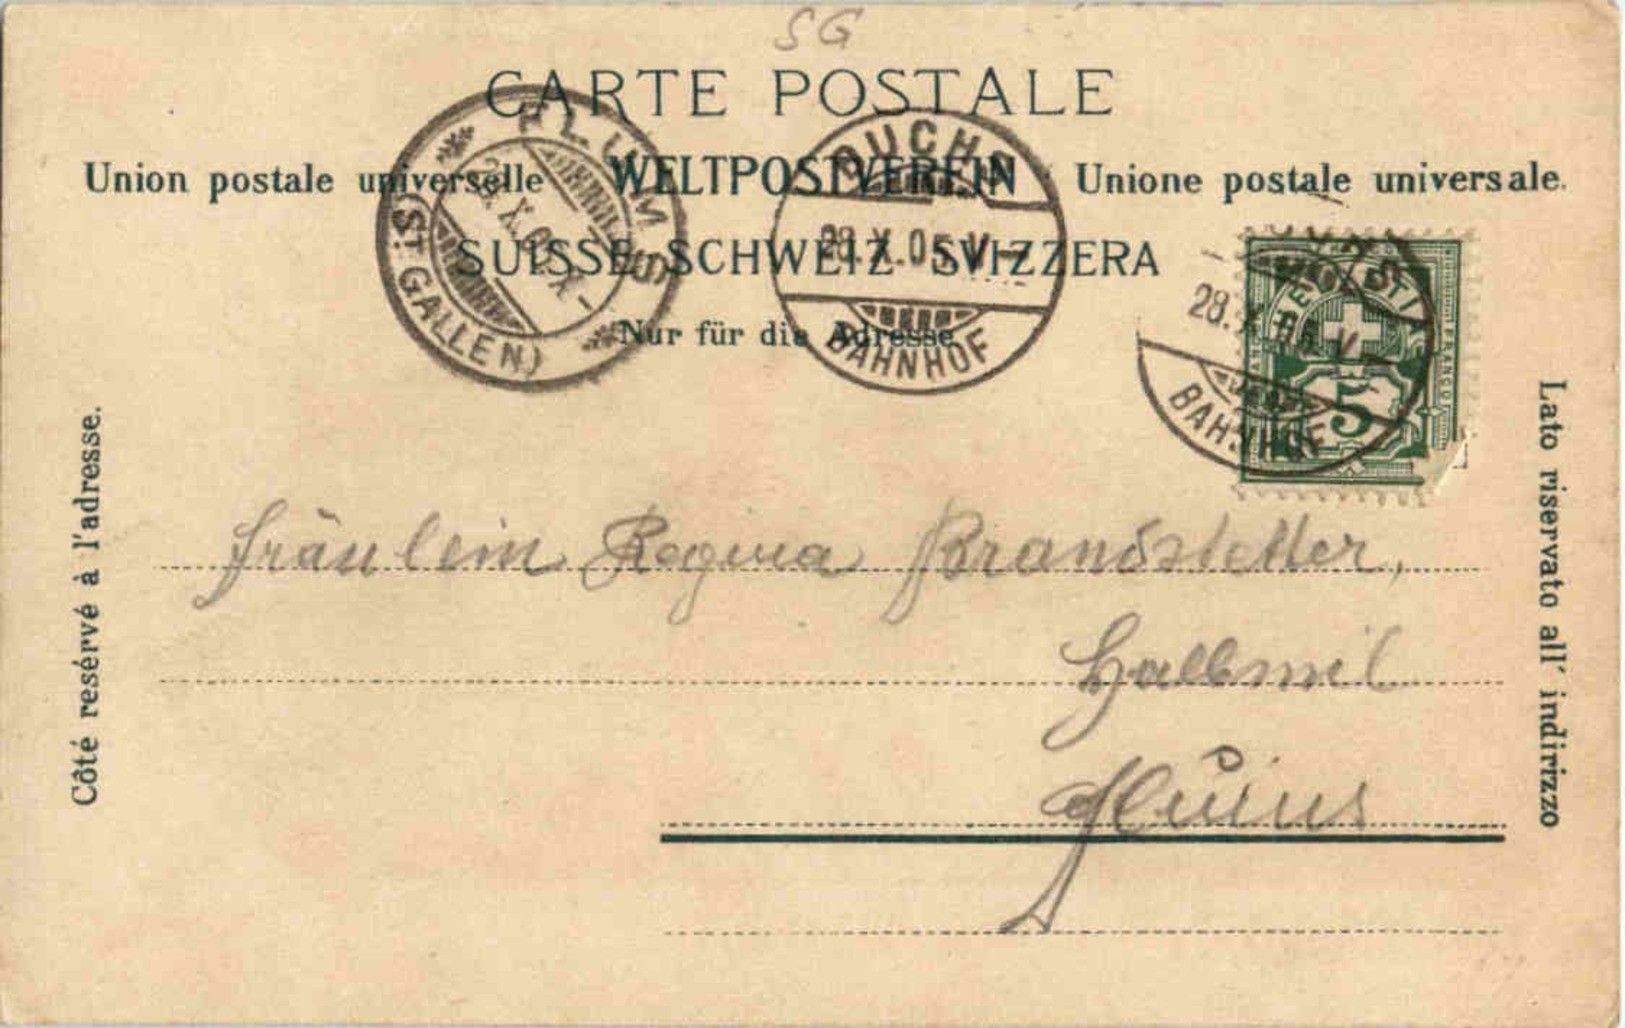 SG
CARTE POSTALE
Union postale universelle WELTPOSTVEREIN Unione postale universale.
SUISSE SCHWEIZ SVIZZERA
Nur für die Adresse
FLUMS
(ST. GALLEN)
BUCHS
28.X.05.V–
BAHNHOF
28.X.05.V–
BAHNHOF
5
Côté resérvé à l'adresse.
Lato riservato all' indirizzo
Fräulein Regina Brandstetter,
Flums